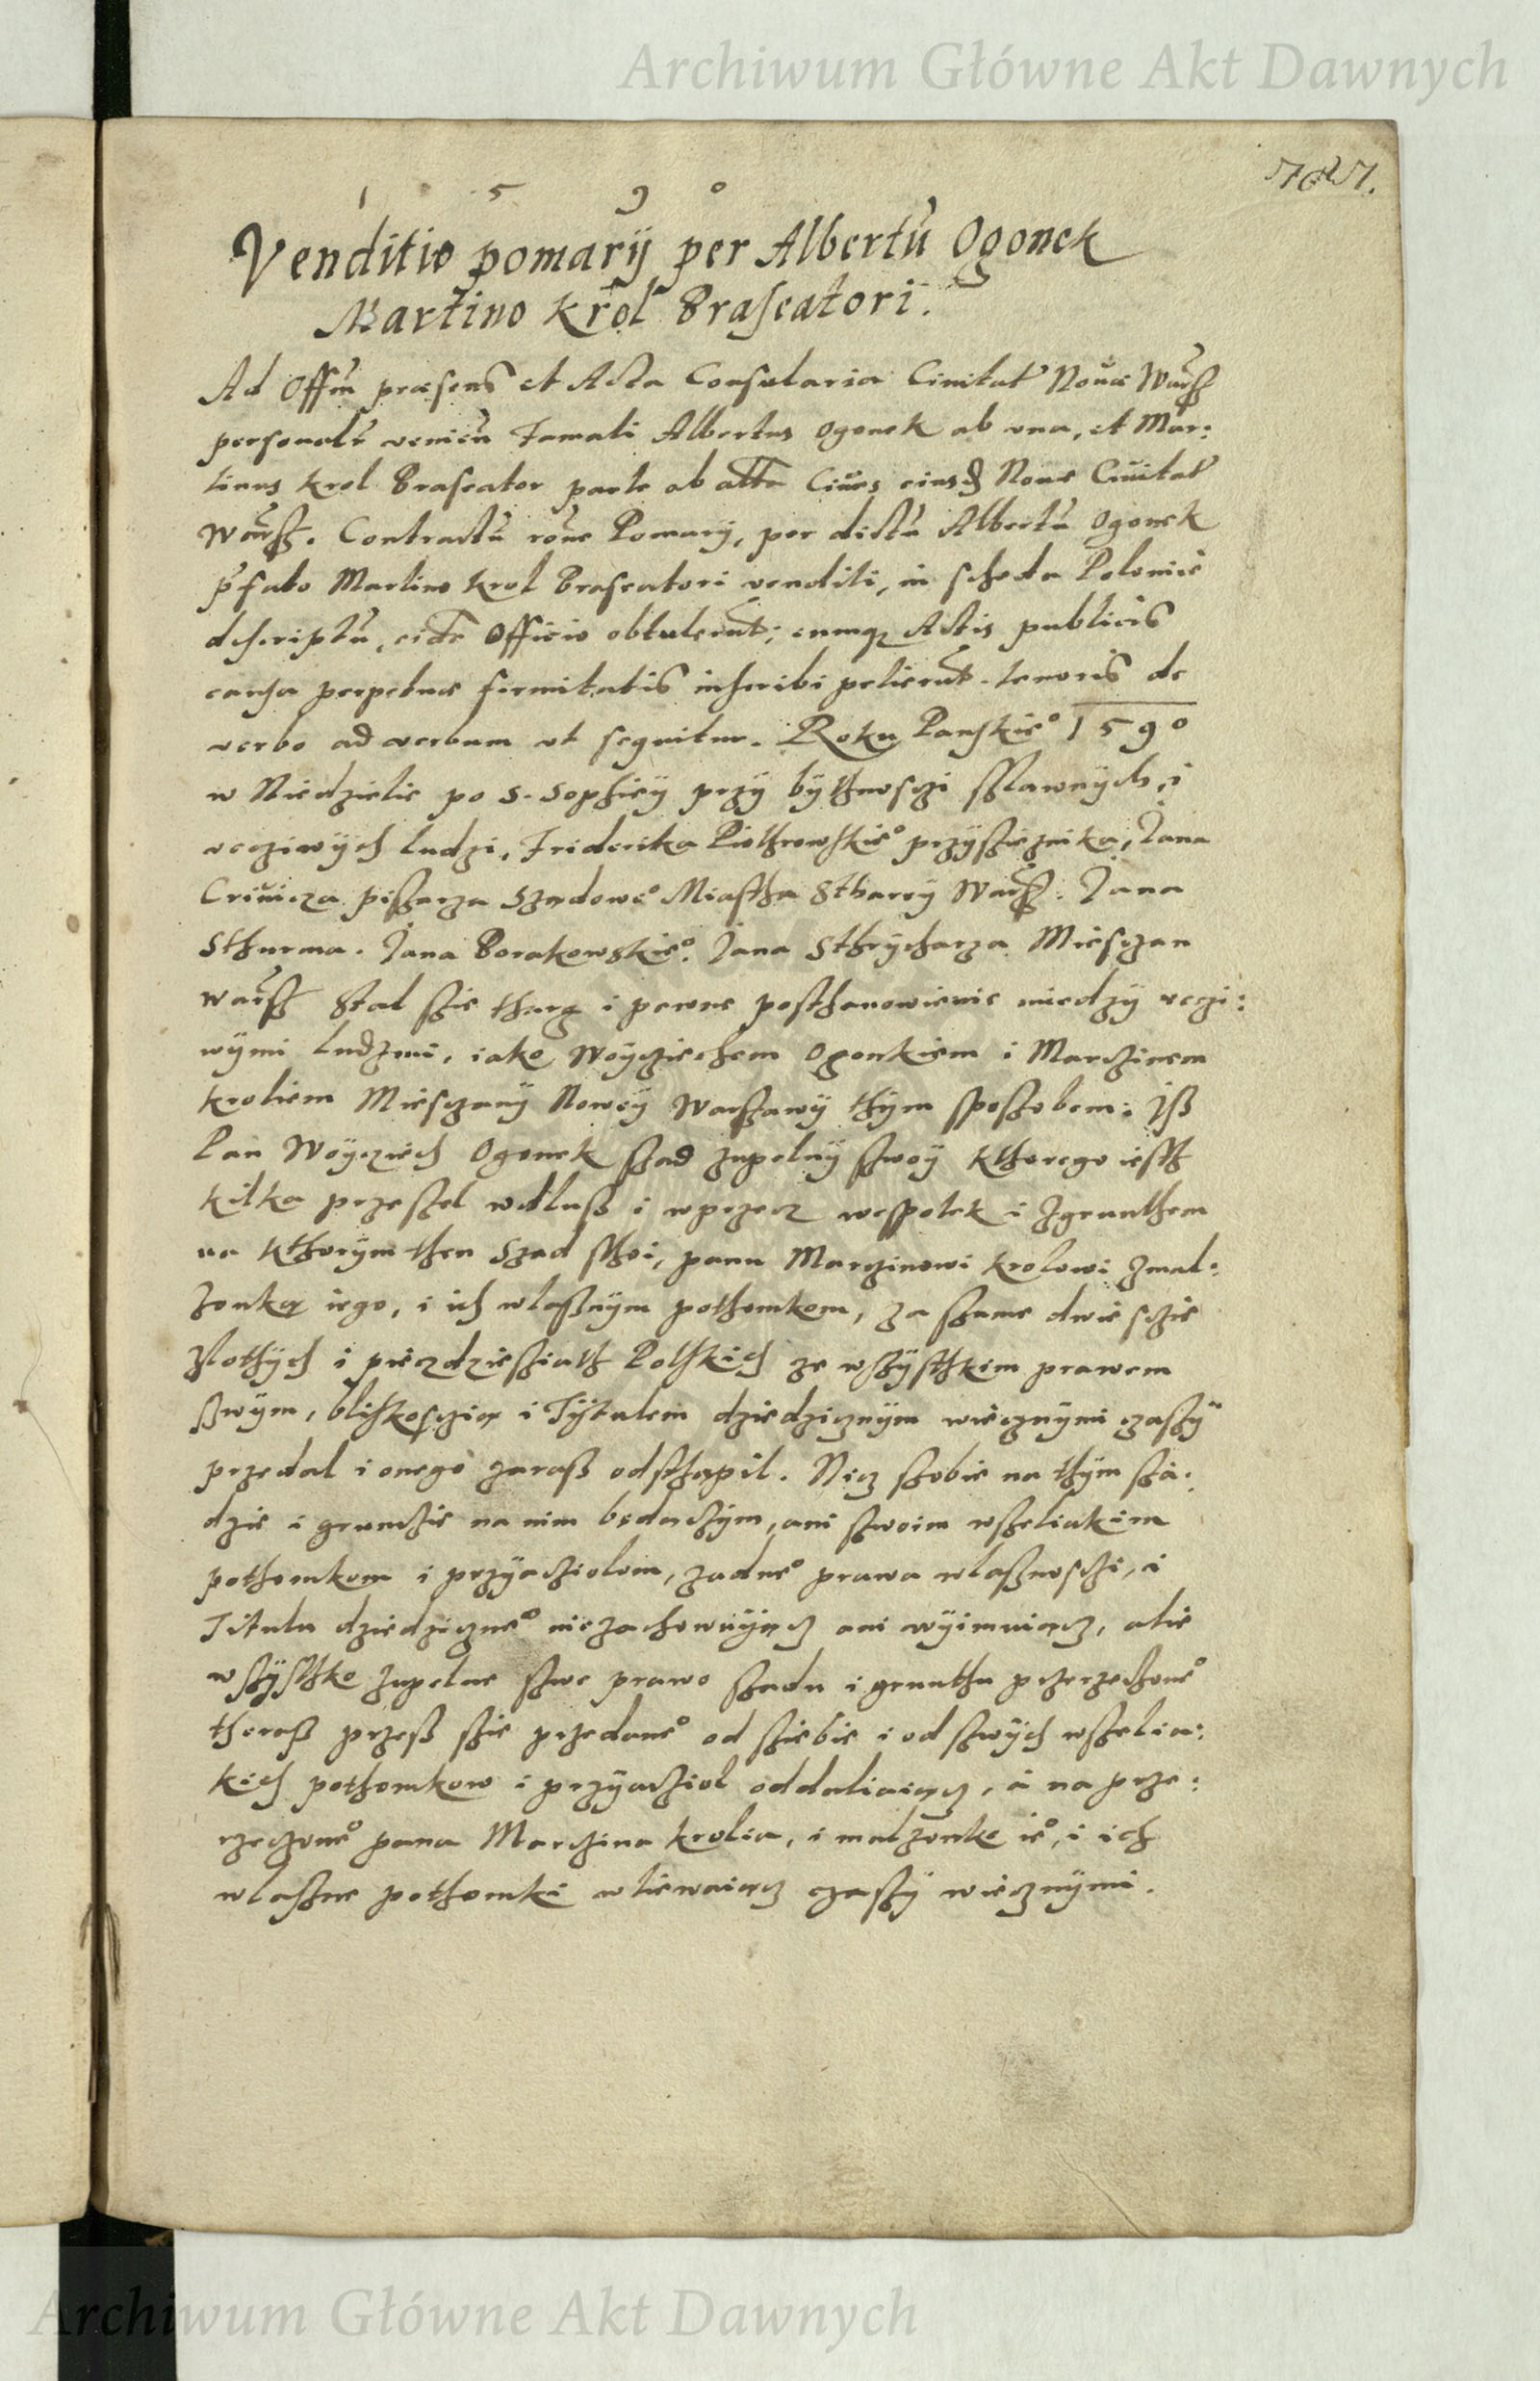 Archiwum Główne Akt Dawnych
1 5 9 0
Venditio pomarÿ per Albertū Ogonek
Martino Krol Braseatori.
Ad Offm præsens et Acta Consularia Ciuitat Nouæ Warſz
personalr venien Famati Albertus Ogonek ab vna, et Mar:
tinus Krol Braseator parte ab altta Ciues eiusd Noue Ciuitat
Warſz. Contractū roue Pomarÿ, per dictū Albertū Ogonek
pfato Martino Krol Braseatori venditi, in scheda Polonice
descriptū, eidē Officio obtulerūt; eumq Actis publicis
causa perpetuæ firmitatis inscribi petierūt. tenoris de
verbo ad verbum vt sequitur. Roku Panskie° 1590
w Niedzielie po S. Sophiey przÿ bÿthnosczi sławnÿch, i
vcziwÿch ludzi, Friderika Piothrowskie° przÿsieznika, Jana
Criuicza pisarza Szadowe° Miastha Stharey Warſz. Jana
Sthurma. Jana Borakowskie°. Jana Sthrÿcharza Miesczan
Warſz Stal szie tharg i pewne posthanowienie miedzÿ vczi:
wÿmi ludzmi, iako Woÿcziechem Ogonkiem i Marczinem
Kroliem Miesczanÿ Nowey Warszawÿ thÿm sposzobem; Jsz
Pan Woÿciech Ogonek szad zupelnÿ szwoÿ kthorego iesth
kilka przeszel wdlusz i wprzecz wespolek i zgrunthem
na kthorÿm then Szad sthoi, panu Marczinowi Krolowi zmal:
zonką iego, i ich wlasznÿm pothomkom, za szume dwiesczie
zlothÿch i pieczdziesziath Polskich ze wszÿsthkim prawem
szwÿm, bliskosczią i Tÿtulem dziedzicznÿm wiecznÿmi czaszÿ
przedal i onego zarasz odsthąpil. Nicz szobie na thÿm sza:
dzie i grunczie na nim bedaczÿm, ani szwoim wszeliakim
pothomkom i przÿacziolom, zadne° prawa wlasznosczi, i
Titulu dziedziczne° niezachowuÿącz ani wÿimuiącz, alie
wszÿsthko zupelne szwe prawo szadu i grunthu przerzeczone°
therasz przesz szie przedane° od sziebie i od szwÿch wszelia:
kich pothomkow i przÿacziol oddaliaiącz, a na prze:
rzeczone° pana Marczina Krolia, i malzonke ie°, i ich
wlaszne pothomki wliewaiącz czaszÿ wiecznÿmi.
Archiwum Główne Akt Dawnych